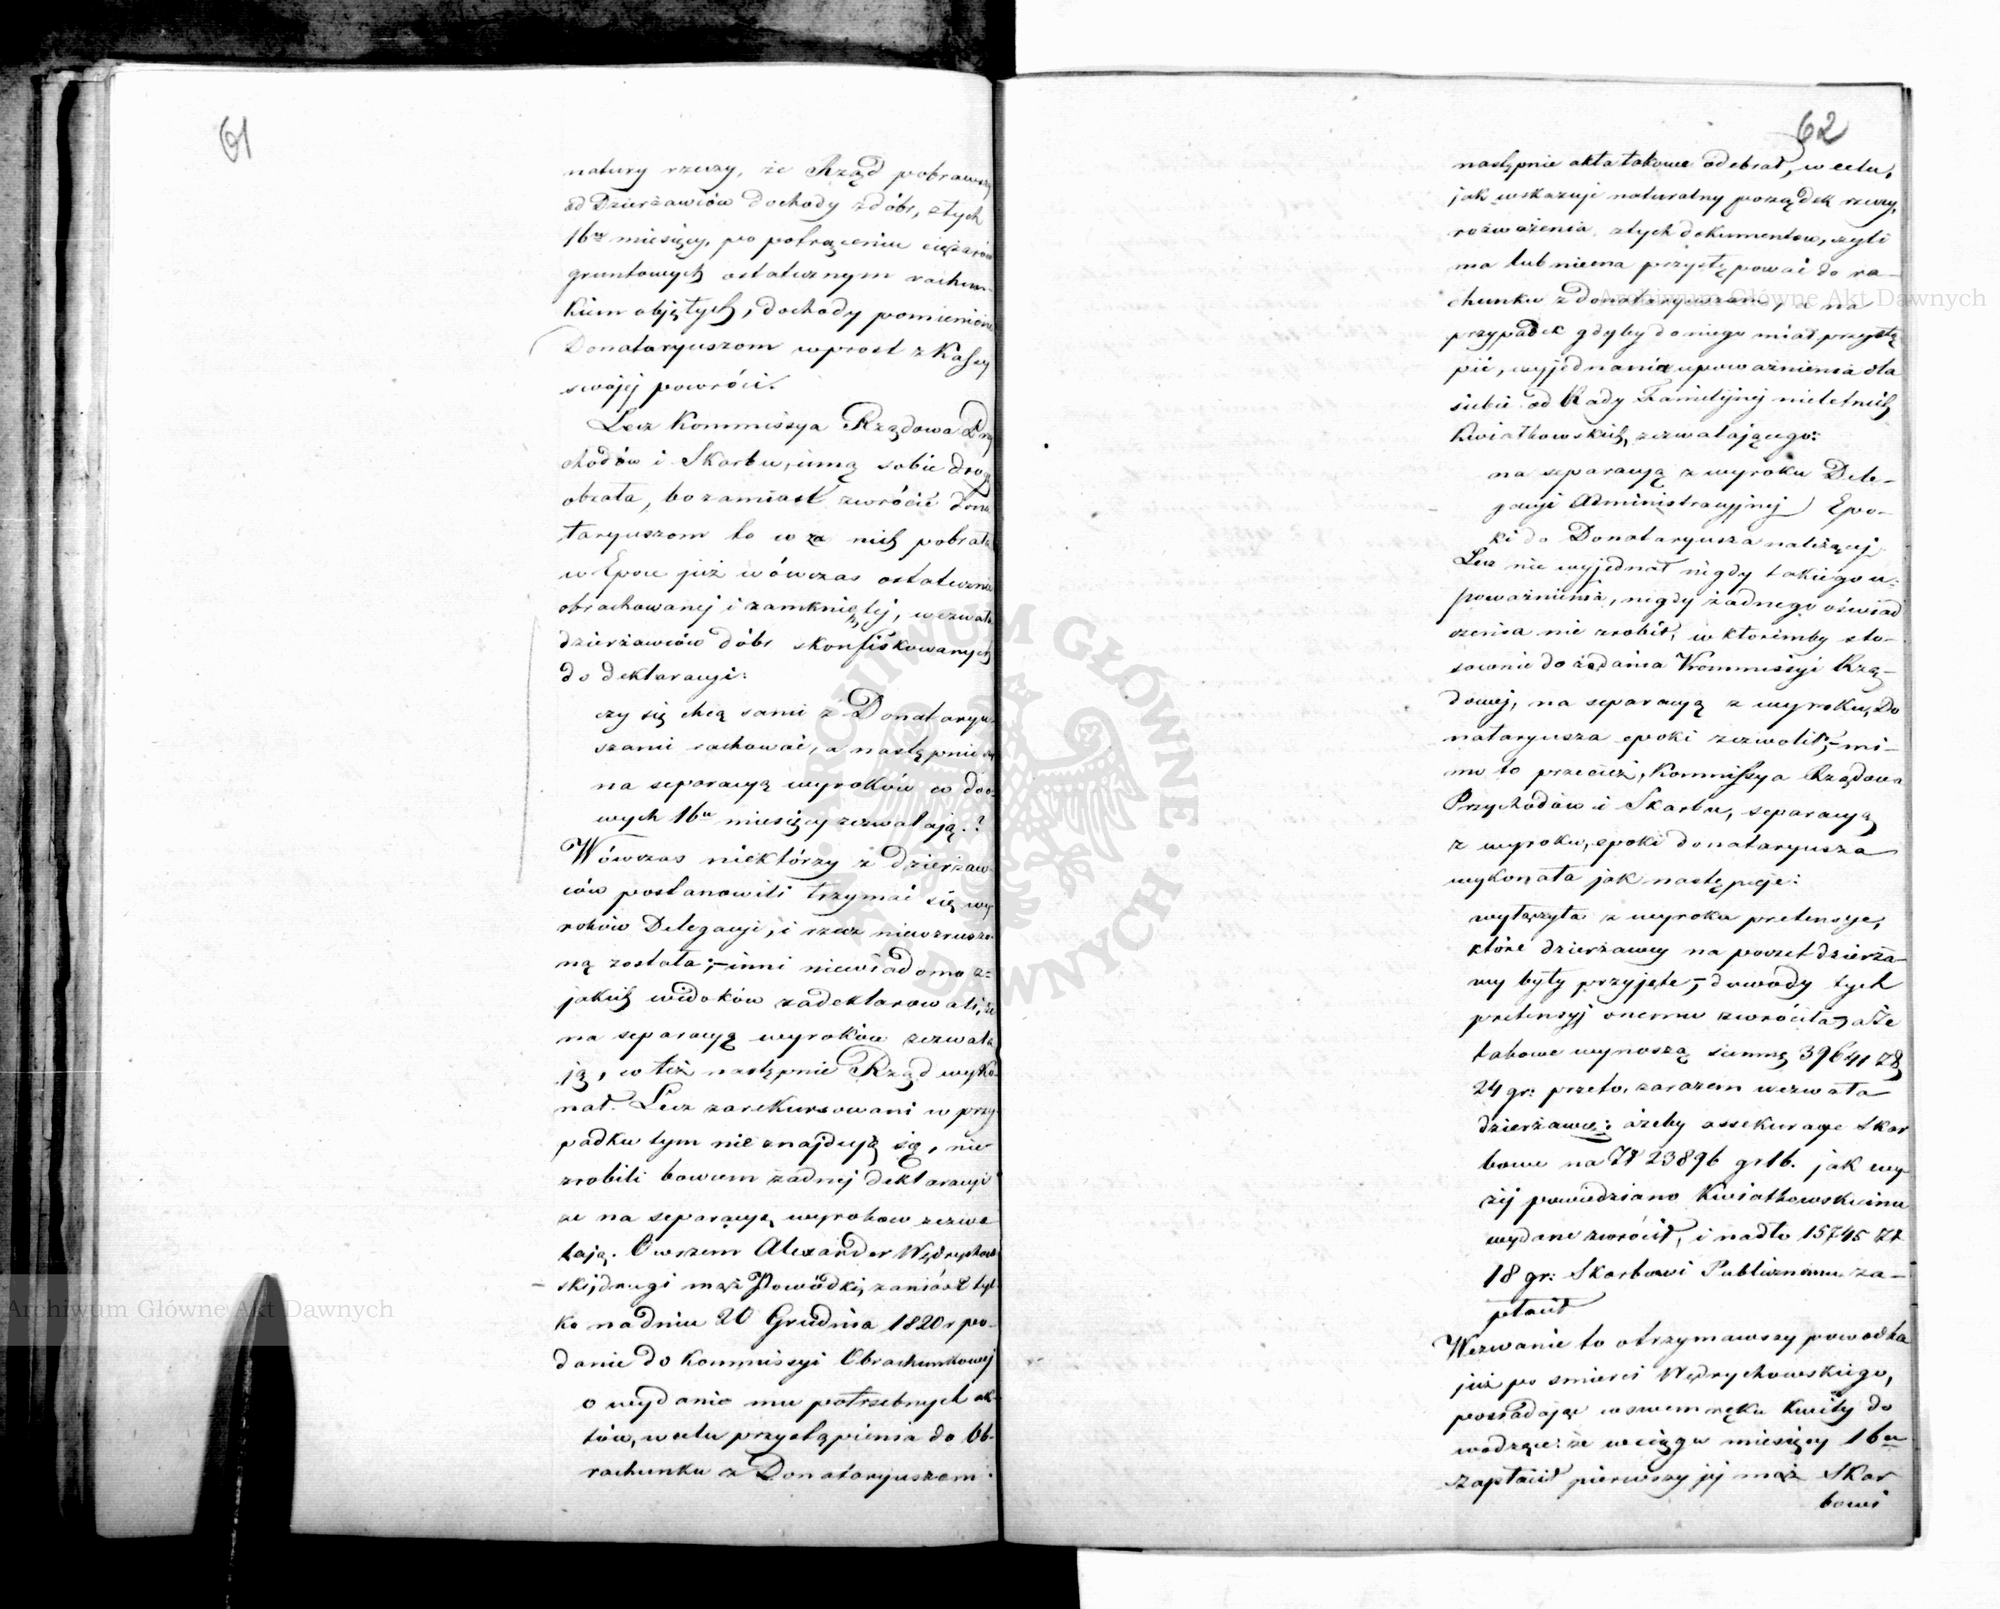 61
natury rzeczy, że Rząd pobrawszy
od Dzierżawców dochody z dóbr, z tych
16tu miesięcy, po potrąceniu ciężarów
gruntowych ostatecznym rachun-
kiem objętych, dochody pomienione
Donataryuszom wprost z Kassy
swojej powróci.
Lecz Kommissya Rządowa Przy
chodów i Skarbu, inną sobie drogę
obrała, bo zamiast zwrócić dona
taryuszom to co za nich pobrała
w Epoce już wówczas ostatecznie
obrachowanej i zamkniętej, wezwała
dzierżawców dóbr skonfiskowanych
do deklaracyi:
czy się chcą sami z Donataryu-
szami rachować, a następnie czy
na separacyą wyroków co do o-
wych 16tu miesięcy zezwalają.?
Wówczas niektórzy z dzierżaw-
ców postanowili trzymać się wy
roków Delegacyi, i rzecz niewzruszo-
ną została; – inni niewiadomo z=
jakich widoków zadeklarowali, że
na separacyą wyroków zezwala
ją, co też następnie Rząd wyko-
nał. Lecz zarekursowani w przy
padku tym nie znajdują się, nie
zrobili bowiem żadnej deklaracyi
że na separacyą wyroków zezwa
lają. Owszem Alexander Wędrychow
ski, drugi mąż Powódki, zaniósł tyl
ko na dniu 20 Grudnia 1820 r po-
danie do Kommissyi Obrachunkowej
o wydanie mu potrzebnych ak-
tów, w celu przystąpienia do Ob-
rachunku z Donataryuszem.
62
następnie akta takowe odebrał, w celu,
jak wskazuje naturalny porządek rzeczy,
rozważenia z tych dokumentów, czyli
ma lub niema przystępować do ra-
chunku z donataryuszem, a na
przypadek gdyby do niego miał przystą
pić, wyjednania upoważnienia dla
siebie od Rady Familijnej nieletnich
Kwiatkowskich, zezwalającego:
na separacyą z wyroku Dele-
gacyi Administracyjnej Epo-
ki do Donataryusza należącej.
Lecz nie wyjednał nigdy takiego u-
poważnienia, nigdy żadnego oświad
czenia nie zrobił, w którémby sto-
sownie do żądania Kommissyi Rzą-
dowej, na separacyą z wyroku, Do
nataryusza epoki zezwolił; – mi-
mo to przecież, Kommissya Rządowa
Przychodów i Skarbu, separacyą
z wyroku, epoki donataryusza
wykonała jak następuje:
wyłączyła z wyroku pretensye,
które dzierżawcy na poczet dzierża-
wy były przyjęte, – dowody tych
pretensyj onemu zwróciła, a że
takowe wynoszą summę 39641 Zł
24 gr: przeto, zarazem wezwała
dzierżawcę: ażeby assekuracye Skar
bowe na Zł 23896 gr 16. jak wy-
żej powiedziano Kwiatkowskiemu
wydane zwrócił, i nadto 15745 Zł
18 gr: Skarbowi Publicznemu za-
płacił
Wezwanie to otrzymawszy powodka
już po śmierci Wędrychowskiego,
posiadając w swem ręku kwity do
wodzące: że w ciągu miesięcy 16tu
zapłacił pierwszy jej mąż Skar
bowi
ARCHIWUM GŁÓWNE AKT DAWNYCH
Archiwum Główne Akt Dawnych
Archiwum Główne Akt Dawnych